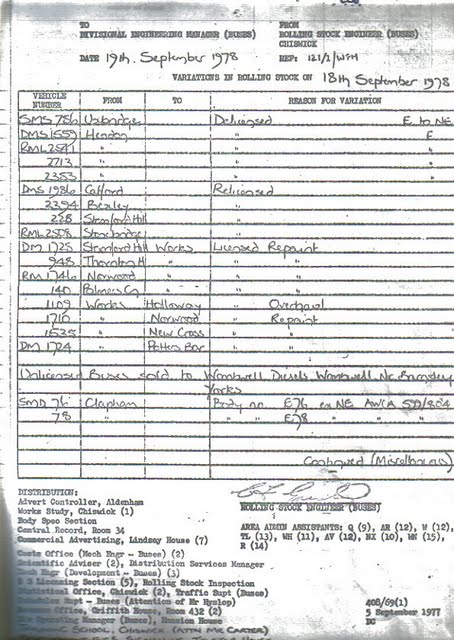 TO FROM
DIVISIONAL ENGINEERING MANAGER (BUSES) ROLLING STOCK ENGINEER (BUSES)
CHISWICK
DATE 19th. September 1978 REF: 121/1/WFM
VARIATIONS IN ROLLING STOCK ON 18th September 1978
VEHICLE NUMBER FROM TO REASON FOR VARIATION
SMS 756 Uxbridge Delicensed E to NE
DMS 1559 Hendon " E
RML 2541 " " "
2713 " " "
2353 " " "
DMS 1986 Catford Relicensed
2394 Bexley "
228 Stamford Hill "
RML 2508 Stonebridge "
DM 1725 Stamford Hill Works Licensed Repaint
948 Thornton H " " "
RM 1746 Norwood " " "
140 Palmers Gn " " "
1109 Works Holloway " Overhaul
1710 " Norwood " Repaint
1535 " New Cross " "
DM 1724 " Potters Bar " "
Unlicensed Buses sold to Wombwell Diesels Wombwell Nr. Barnsley
Yorks
SMD 76 Clapham Body no. E76 ex NE
78 " " E78 " " " "
Continued (Miscellaneous)
DISTRIBUTION:
Advert Controller, Aldenham
Works Study, Chiswick (1)
Body Spec Section
Central Record, Room 34
Commercial Advertising, Lindsey House (7)
Costs Office (Mech Engr - Buses) (2)
Scientific Adviser (2), Distribution Services Manager
Mech Engr (Development - Buses) (3)
Licensing Section (5), Rolling Stock Inspection
Statistical Office, Chiswick (2), Traffic Supt (Buses)
Schedules Supt - Buses (Attention of Mr Hyslop)
Office, Griffith House, Room 432 (2)
Operating Manager (Buses), Mension House
SCHOOL, CHISWICK (ATTN MR CARTER)
ROLLING STOCK ENGINEER (BUSES)
AREA ADMIN ASSISTANTS: Q (9), AR (12), W (12),
TL (13), WH (11), AV (12), NX (10), WN (15),
R (14)
408/69(1)
5 September 1977
BG